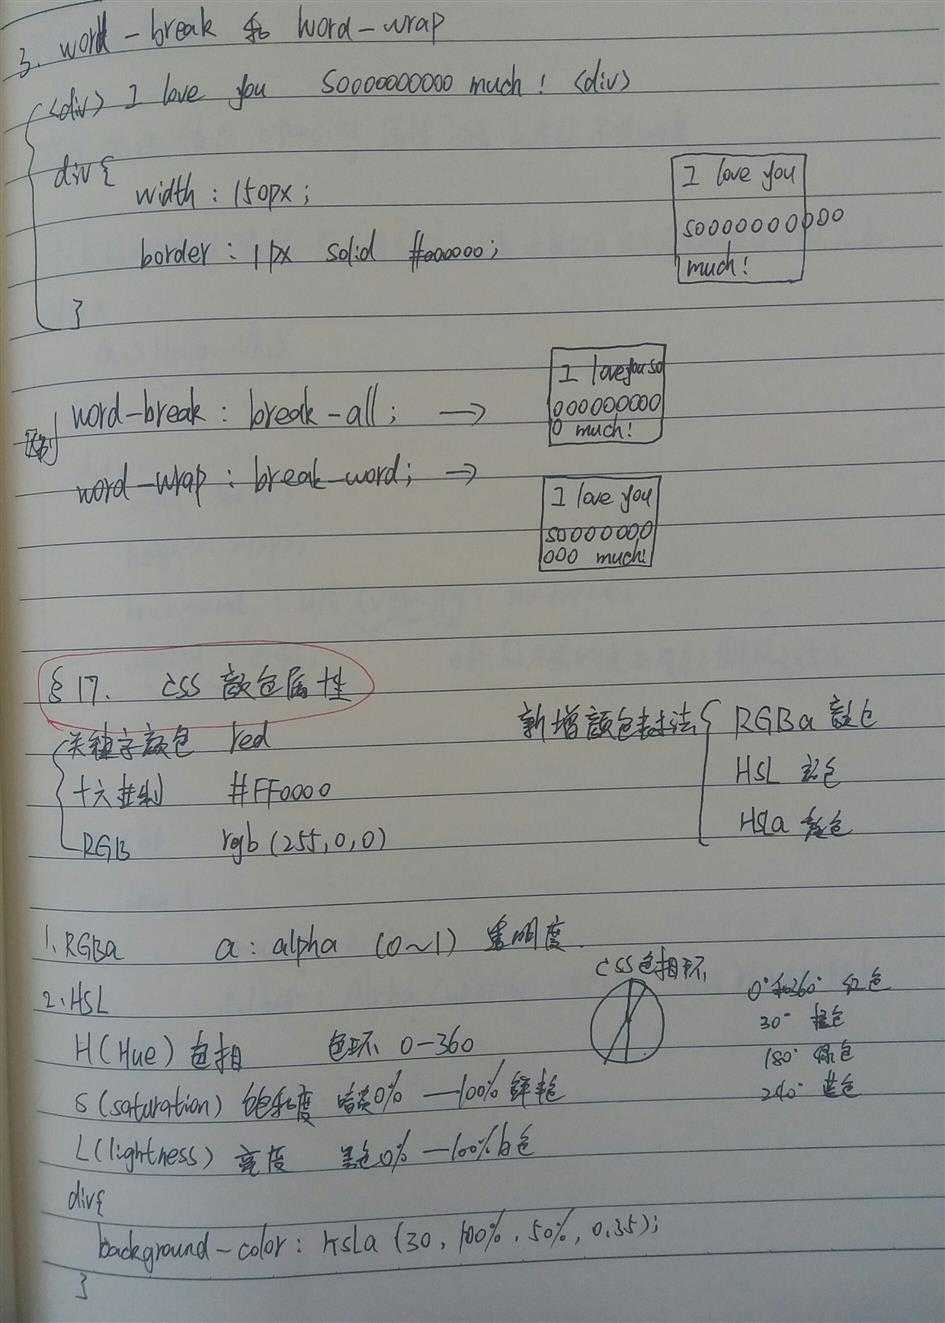 3. word-break 和 word-wrap
<div> I love you soooooooooo much! <div>
div{
width: 150px;
border: 1px solid #000000;
}
I love you
soooooooooo
much!
区别
word-break: break-all; →
I love you so
ooooooooo
o much!
word-wrap: break-word; →
I love you
soooooooo
ooo much!
§17. CSS 颜色属性
关键字颜色 red
十六进制 #FF0000
RGB rgb(255,0,0)
新增颜色表示法
RGBa 颜色
HSL 颜色
HSla 颜色
1、RGBa a: alpha (0~1) 透明度
2、HSL
H(Hue) 色相 色环 0-360
S(saturation) 饱和度 0% —100% 鲜艳
L(lightness) 亮度 黑色0% —100%白色
CSS色相环
0°和360° 红色
30° 橙色
180° 绿色
240° 蓝色
div{
background-color: hsla (30, 100%, 50%, 0.35);
}